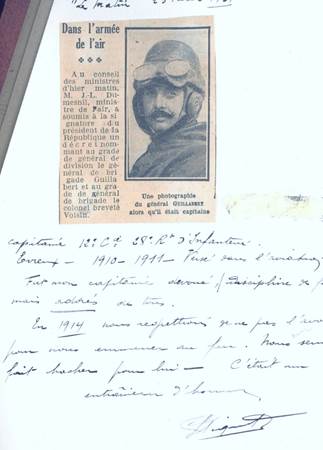 "Le Matin"
Dans l'armée
de l'air
Au conseil
des ministres
d'hier matin,
M. J.-L. Du-
mesnil, minis-
tre de l'air, a
soumis à la si-
gnature du
président de la
République un
décret nom-
mant au grade
de général de
division le géné-
ral de brigade
Guillabert et au gra-
de de général
de brigade le
colonel breveté
Voisin.
Une photographie
du général GUILLABERT
alors qu'il était capitaine
capitaine 12e Cie 28e Rt d'Infanterie.
Evreux - 1910 - 1911 - dans
Fut mon capitaine discipline de
mais adoré de tous.
En 1914 nous regettions de ne pas l'avoir
pour nous emmener au feu. Nous
fait hacher pour lui - C'était un
entraîneur d'hommes